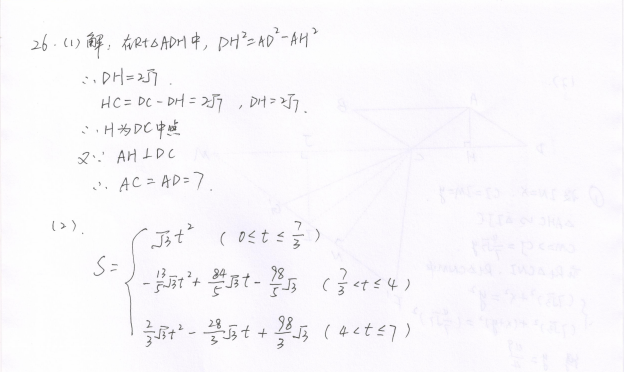 26.(1)解：在Rt△ADH中，DH²=AD²-AH²
∴DH=2√7.
HC=DC-DH=2√7，DH=2√7.
∴H为DC中点
又∵AH⊥DC
∴AC=AD=7.
(2).
S={ √3t² (0≤t≤7/3)
-13/5√3t²+84/5√3t-98/5√3 (7/3<t≤4)
2/3√3t²-28/3√3t+98/3√3 (4<t≤7)